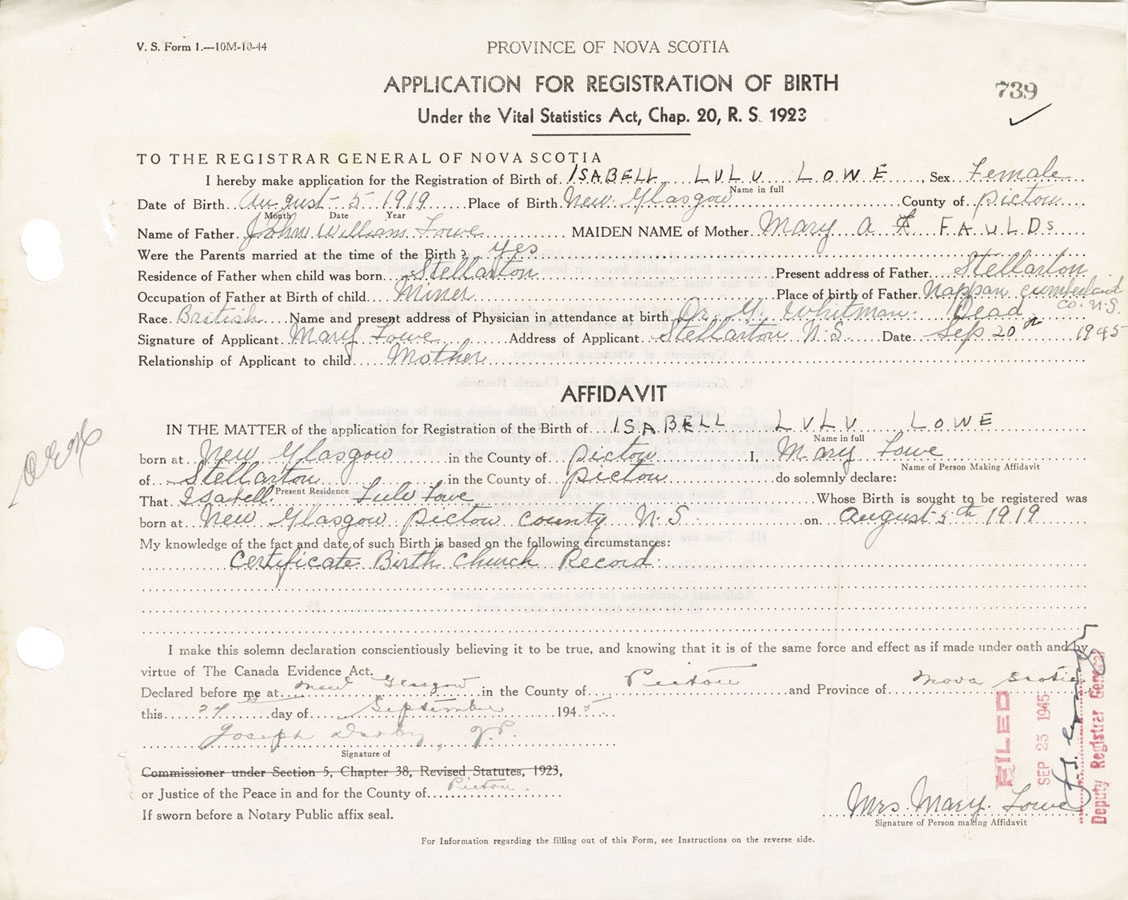 V. S. Form 1.—10M-10-44
PROVINCE OF NOVA SCOTIA
APPLICATION FOR REGISTRATION OF BIRTH
739
Under the Vital Statistics Act, Chap. 20, R. S. 1923
TO THE REGISTRAR GENERAL OF NOVA SCOTIA
I hereby make application for the Registration of Birth of ISABELL LULU LOWE, Sex Female
Name in full
Date of Birth August 5 1919 Place of Birth New Glasgow County of Pictou
Month Date Year
Name of Father John William Lowe MAIDEN NAME of Mother Mary A FAULDS
Were the Parents married at the time of the Birth? yes
Residence of Father when child was born Stellarton Present address of Father Stellarton
Occupation of Father at Birth of child Miner Place of birth of Father Nappan Cumberland Co. N.S.
Race British Name and present address of Physician in attendance at birth Dr. G. Whitman. Dead
Signature of Applicant Mary Lowe Address of Applicant Stellarton N.S. Date Sep 20th 1945
Relationship of Applicant to child Mother
AFFIDAVIT
IN THE MATTER of the application for Registration of the Birth of ISABELL LULU LOWE
Name in full
born at New Glasgow in the County of Pictou I, Mary Lowe
Name of Person Making Affidavit
of Stellarton in the County of Pictou do solemnly declare:
Present Residence
That Isabell Lulu Lowe Whose Birth is sought to be registered was
born at New Glasgow Pictou County N.S. on August 5th 1919
My knowledge of the fact and date of such Birth is based on the following circumstances:
Certificate Birth Church Record
I make this solemn declaration conscientiously believing it to be true, and knowing that it is of the same force and effect as if made under oath and by
virtue of The Canada Evidence Act.
Declared before me at New Glasgow in the County of Pictou and Province of Nova Scotia
this day of September 1945
Joseph Darby, J.P.
Signature of
Commissioner under Section 5, Chapter 38, Revised Statutes, 1923,
or Justice of the Peace in and for the County of Pictou
If sworn before a Notary Public affix seal.
FILED
SEP 25 1945
Deputy Registrar General
Mrs. Mary Lowe
Signature of Person making Affidavit
For Information regarding the filling out of this Form, see Instructions on the reverse side.